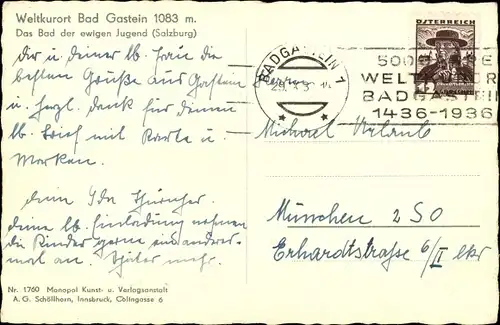 Weltkurort Bad Gastein 1083 m.
Das Bad der ewigen Jugend (Salzburg)
Dir u. deiner lb. Frau die
besten Grüße aus Gastein
u. herzl. Dank für deinen
lb. Brief mit Karte u.
Marken.
deine lb. Einladung nehmen
die Kinder gerne ein anderes
mal an. Später mehr.
Nr. 1760 Monopol Kunst- u. Verlagsanstalt
A. G. Schöllhorn, Innsbruck, Colingasse 6
BADGASTEIN 1
ÖSTERREICH
500 JAHRE
WELTKURORT
BADGASTEIN
1436-1936
Herrn
Michael Urlaub
München 2 SO
Erhardtstraße 6/II